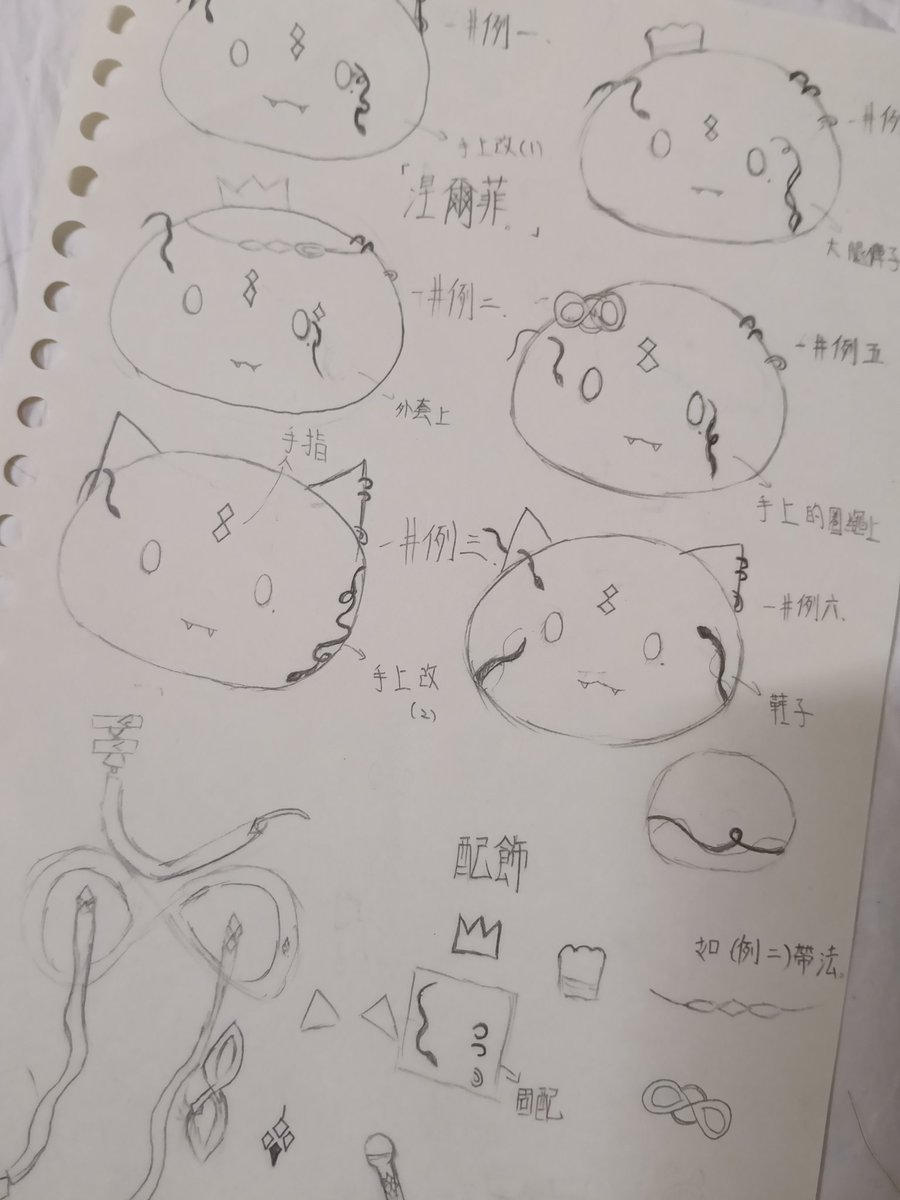 -#例一.
手上改(1)
「涅爾菲。」
-#例
大腿
-#例二.
外套上
-#例五
手上的圈繩上
手指
-#例三.
手上改
(2)
-#例六.
鞋子
配飾
如(例二)帶法。
固配